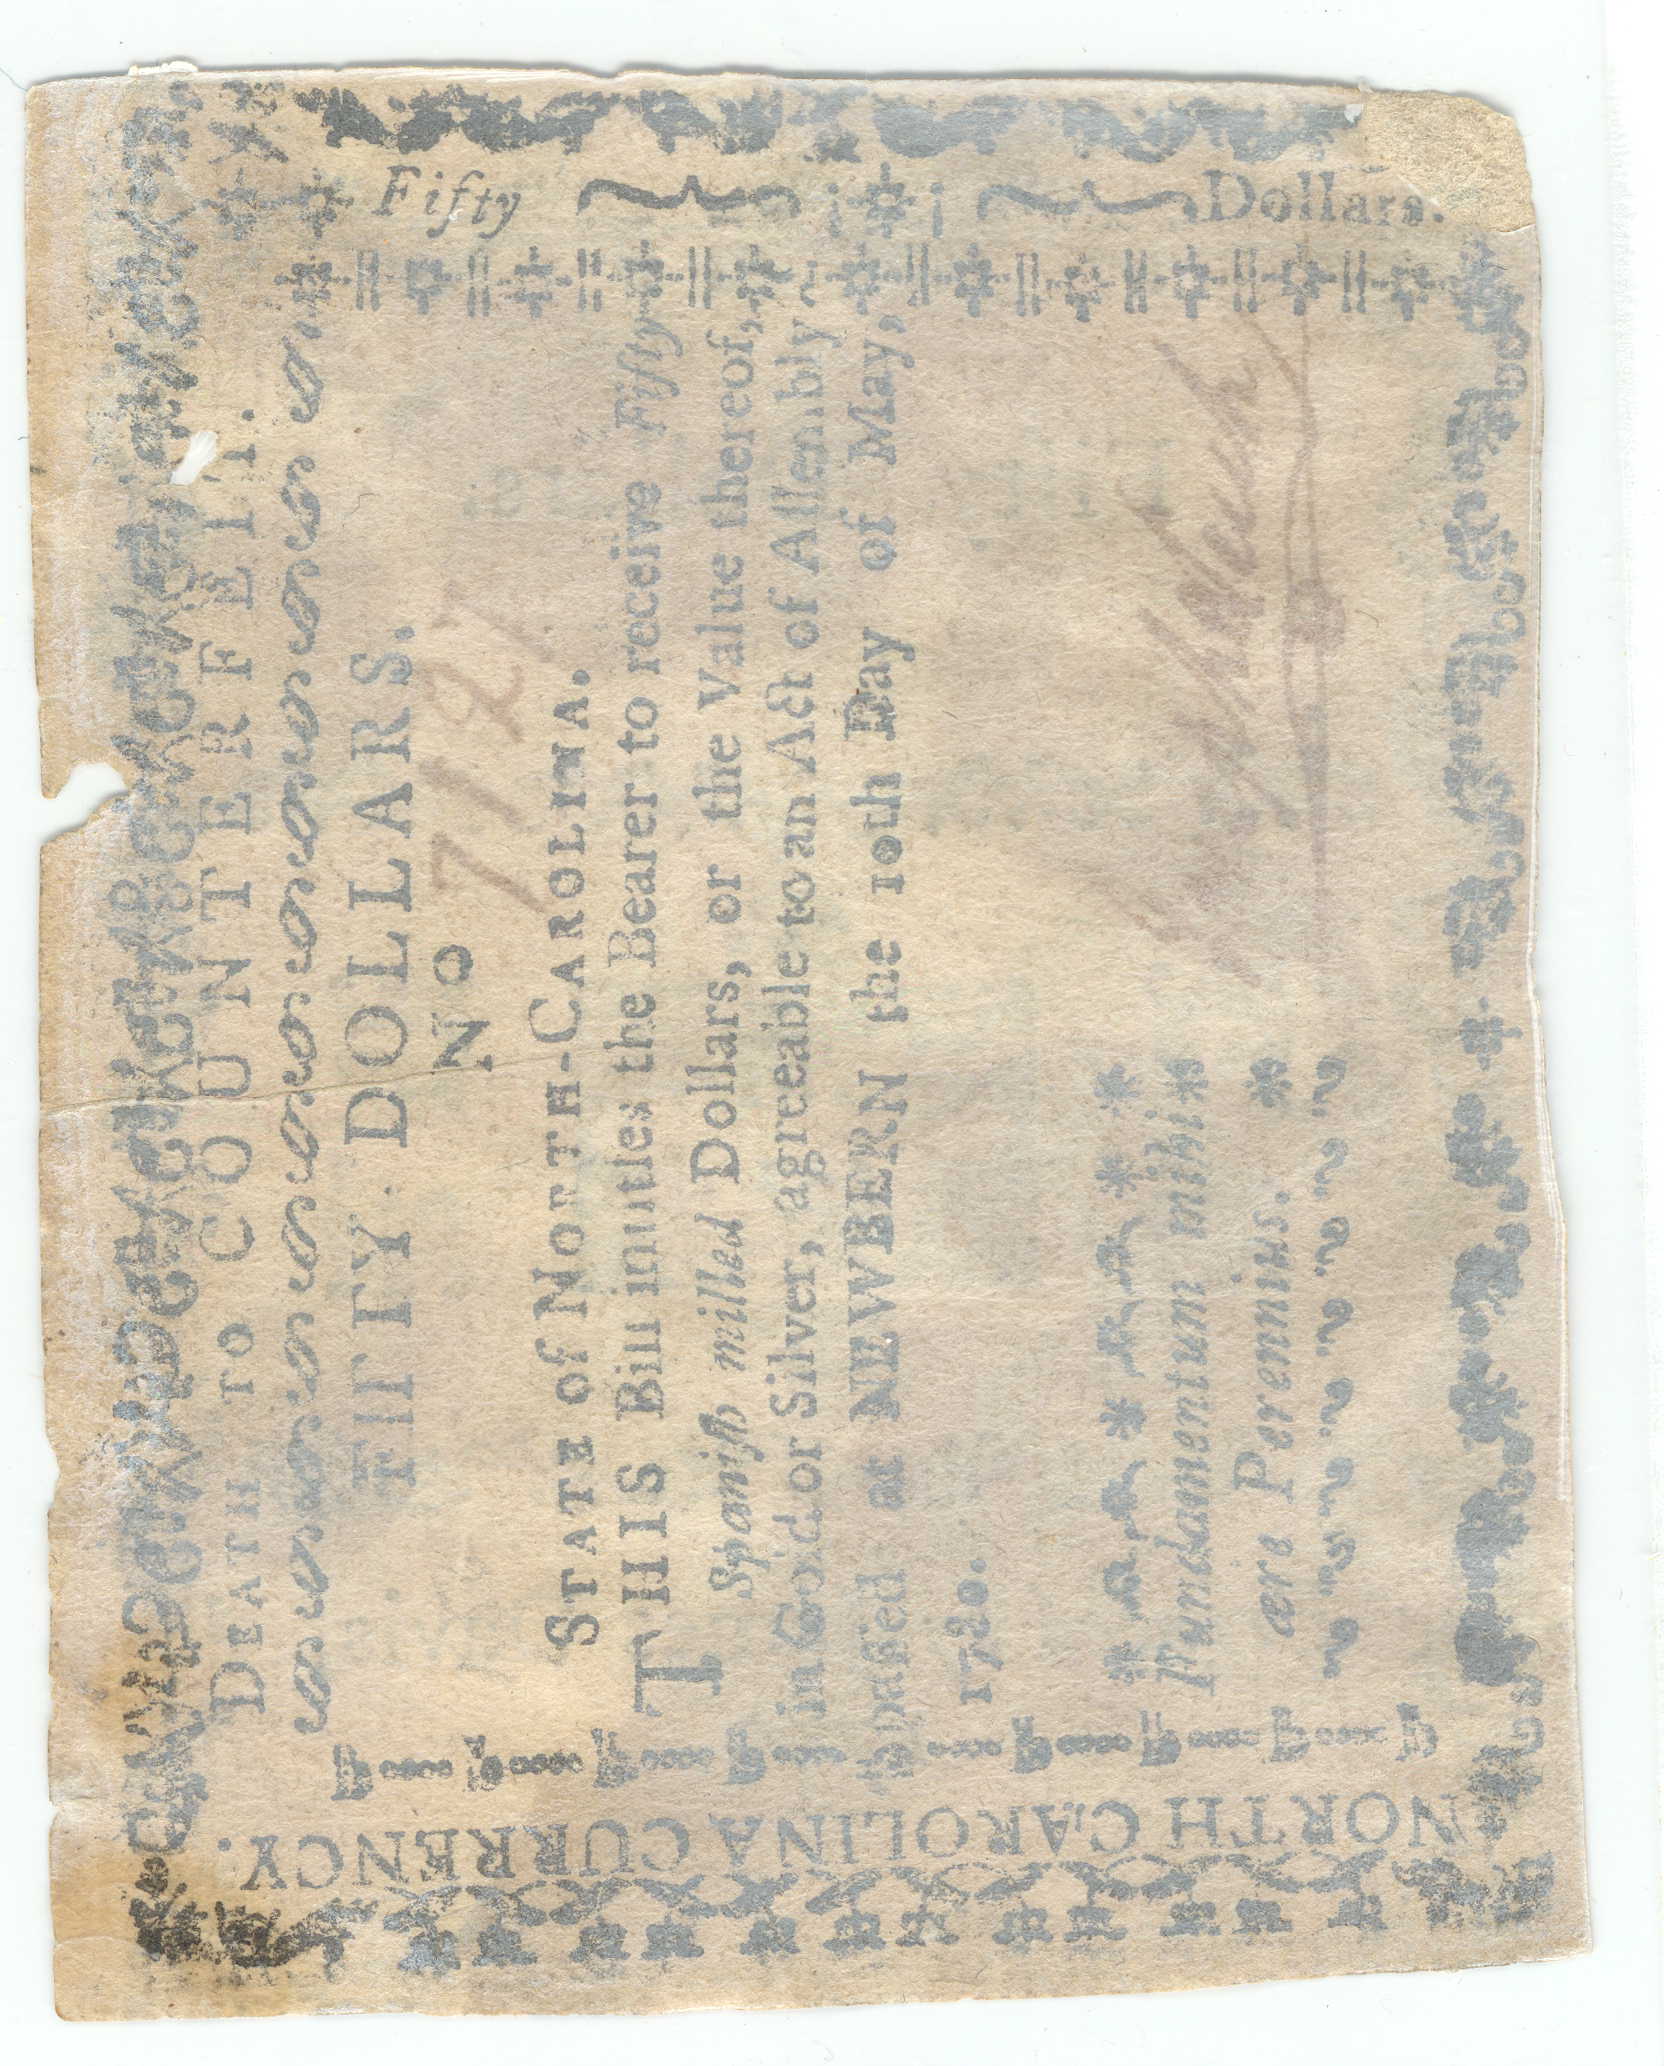 DEATH TO COUNTERFEIT.
FIFTY DOLLARS.
NO 7127
STATE of NORTH-CAROLINA.
THIS Bill intitles the Bearer to receive Fifty
Spaniſh milled Dollars, or the Value thereof,
in Gold or Silver, agreeable to an Act of Aſſembly
paſſed at NEWBERN the 10th Day of May,
1780.
Fundamentum mihi
ære Perennius.
NORTH CAROLINA CURRENCY.
Fifty Dollars.